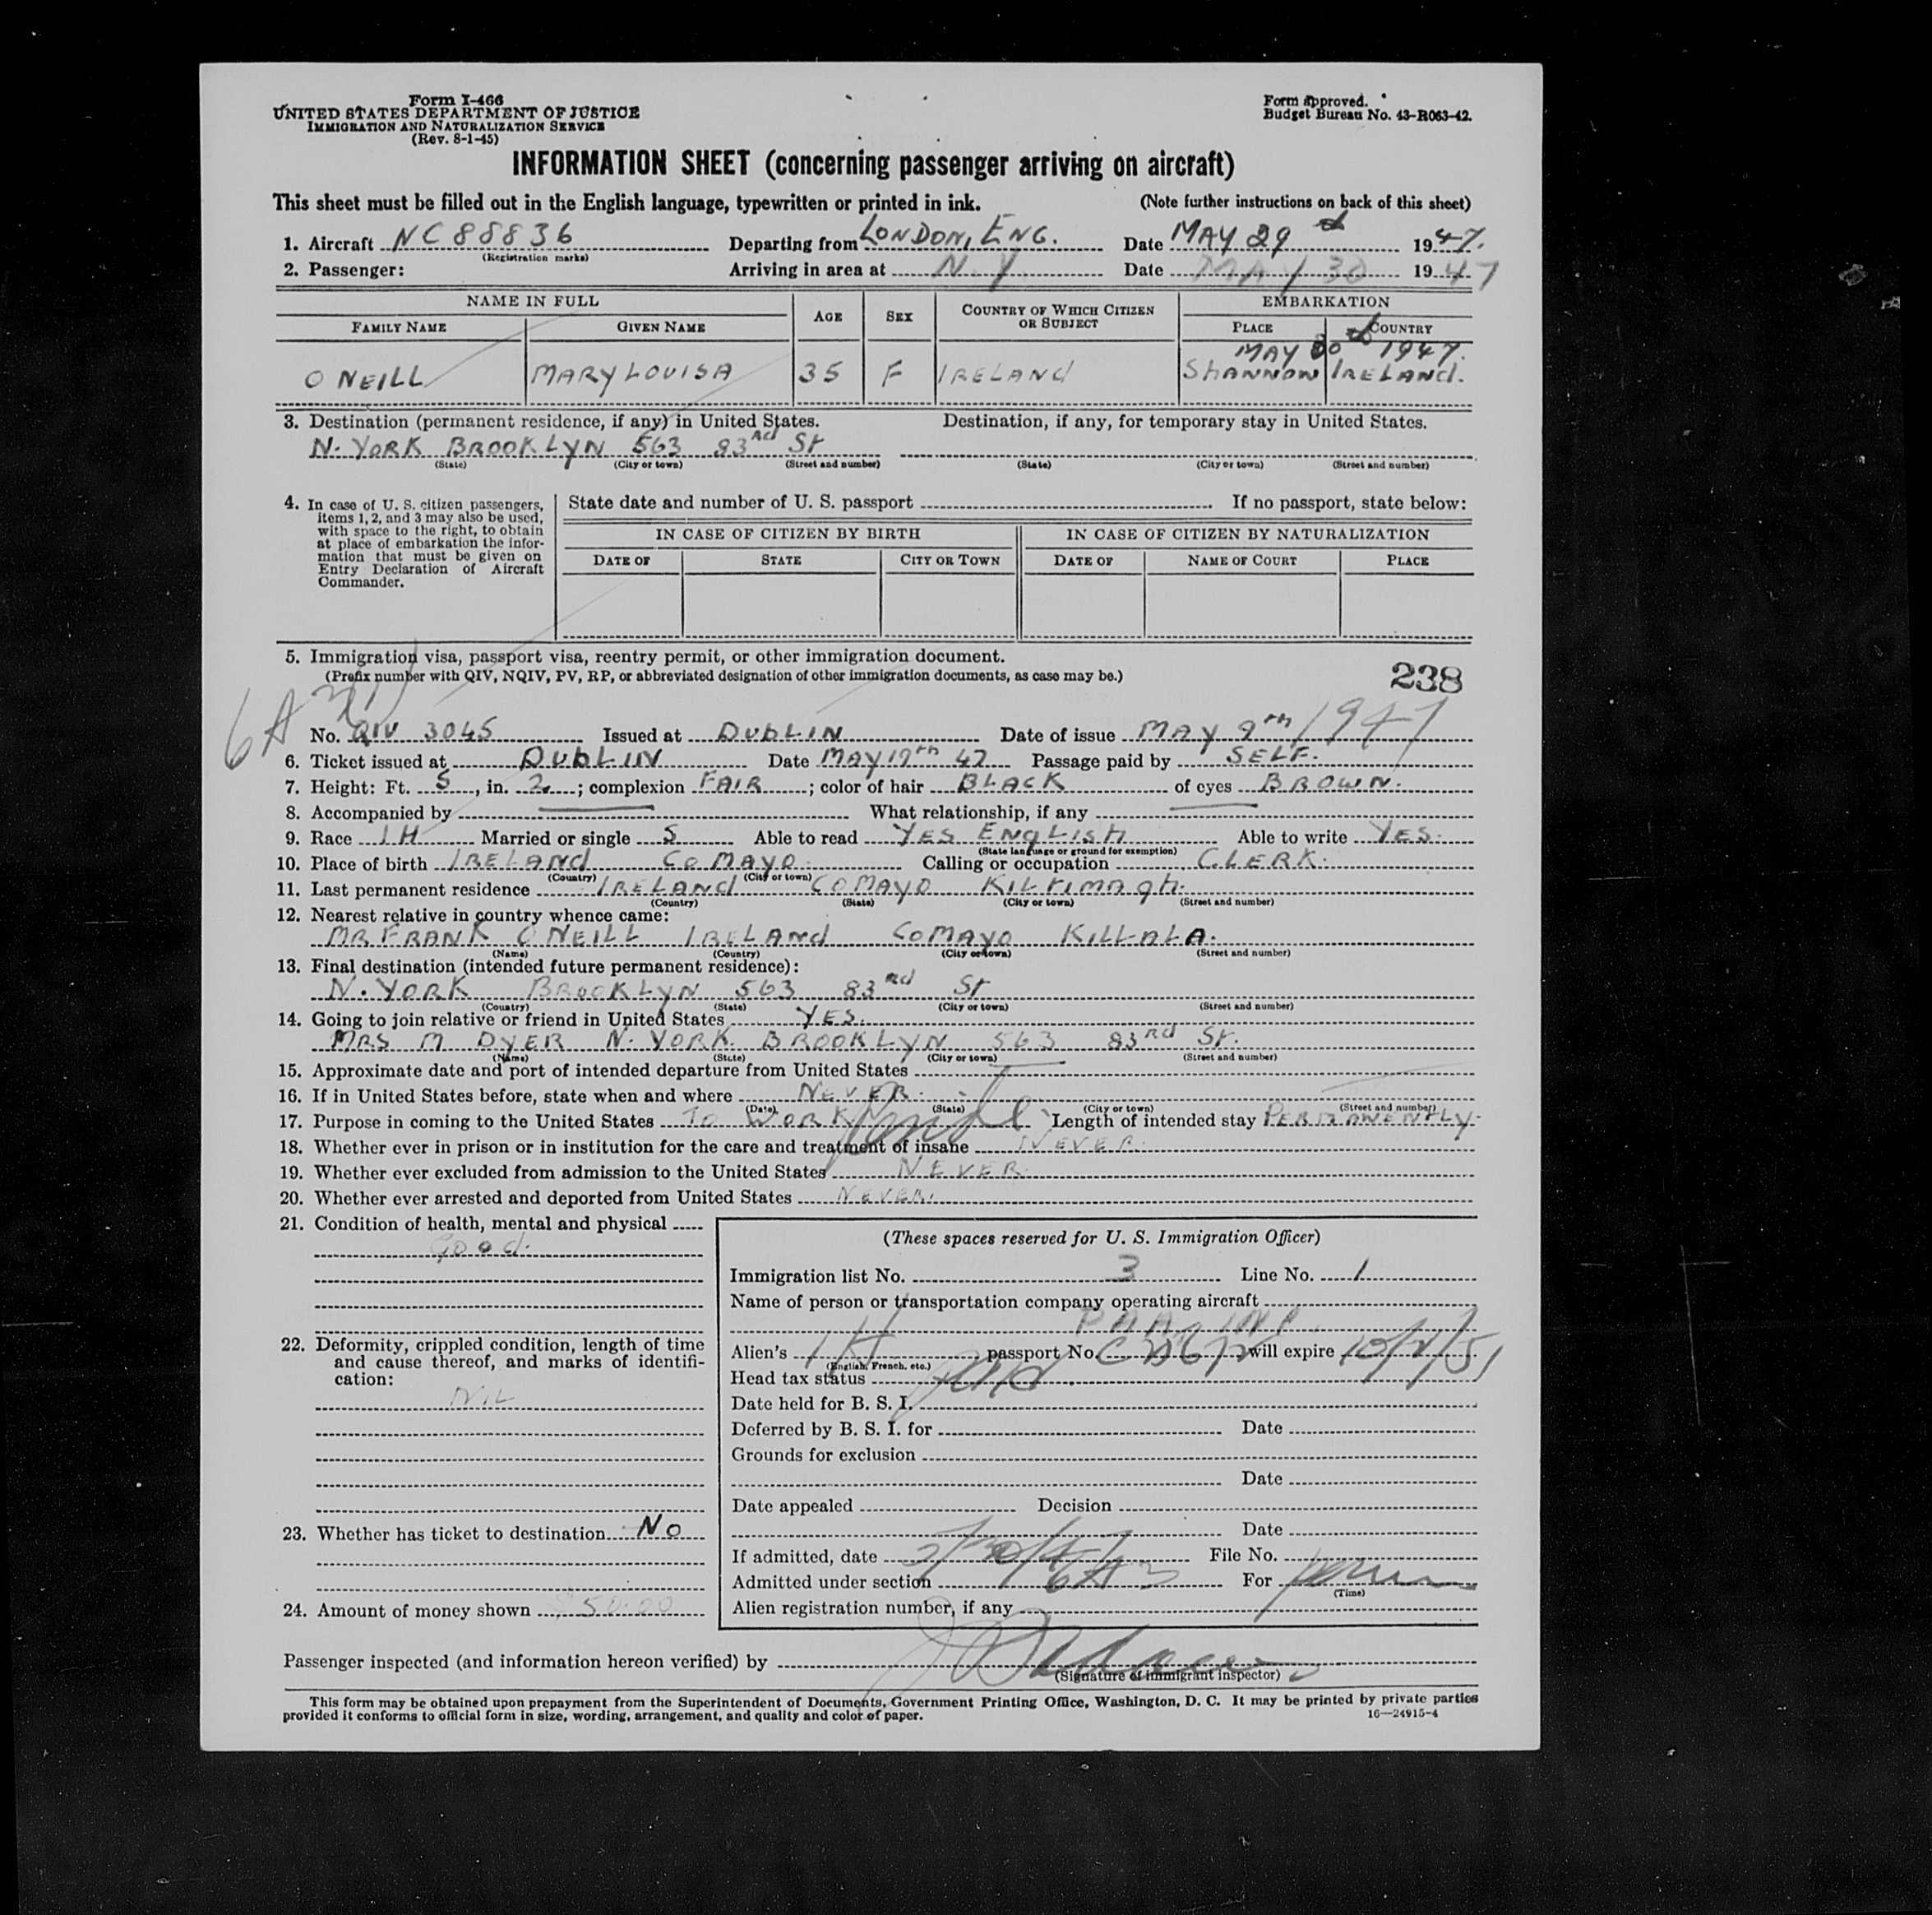 Form I-466
UNITED STATES DEPARTMENT OF JUSTICE
IMMIGRATION AND NATURALIZATION SERVICE
(Rev. 8-1-45)
Form approved.
Budget Bureau No. 43-R063-42.
INFORMATION SHEET (concerning passenger arriving on aircraft)
This sheet must be filled out in the English language, typewritten or printed in ink. (Note further instructions on back of this sheet)
1. Aircraft NC 88836 Departing from LONDON, ENG. Date MAY 29 1947.
(Registration marks)
2. Passenger: Arriving in area at N.Y. Date MAY 30 1947
NAME IN FULL AGE SEX COUNTRY OF WHICH CITIZEN OR SUBJECT EMBARKATION
FAMILY NAME GIVEN NAME PLACE COUNTRY
MAY 30 1947.
O NEILL MARY LOUISA 35 F IRELAND SHANNON IRELAND.
3. Destination (permanent residence, if any) in United States. Destination, if any, for temporary stay in United States.
N. YORK BROOKLYN 563 83rd St
(State) (City or town) (Street and number) (State) (City or town) (Street and number)
4. In case of U. S. citizen passengers, items 1, 2, and 3 may also be used, with space to the right, to obtain at place of embarkation the information that must be given on Entry Declaration of Aircraft Commander.
State date and number of U. S. passport If no passport, state below:
IN CASE OF CITIZEN BY BIRTH IN CASE OF CITIZEN BY NATURALIZATION
DATE OF STATE CITY OR TOWN DATE OF NAME OF COURT PLACE
5. Immigration visa, passport visa, reentry permit, or other immigration document.
(Prefix number with QIV, NQIV, PV, RP, or abbreviated designation of other immigration documents, as case may be.)
238
6A
No. QIV 3045 Issued at DUBLIN Date of issue MAY 9th 1947
6. Ticket issued at DUBLIN Date MAY 19th 47 Passage paid by SELF.
7. Height: Ft. 5, in. 2; complexion FAIR; color of hair BLACK of eyes BROWN.
8. Accompanied by What relationship, if any
9. Race IH Married or single S Able to read YES ENGLISH Able to write YES.
(State language or ground for exemption)
10. Place of birth IRELAND Co MAYO Calling or occupation CLERK.
(Country) (City or town)
11. Last permanent residence IRELAND Co MAYO Kiltimagh.
(Country) (State) (City or town) (Street and number)
12. Nearest relative in country whence came:
MR FRANK O NEILL IRELAND Co MAYO KILLALA.
(Name) (Country) (City or town) (Street and number)
13. Final destination (intended future permanent residence):
N. YORK BROOKLYN 563 83rd St
(Country) (State) (City or town) (Street and number)
14. Going to join relative or friend in United States YES.
MRS M DYER N. YORK. BROOKLYN 563 83rd St.
(Name) (State) (City or town) (Street and number)
15. Approximate date and port of intended departure from United States
16. If in United States before, state when and where NEVER.
(Date) (State) (City or town) (Street and number)
17. Purpose in coming to the United States TO WORK Length of intended stay PERMANENTLY.
18. Whether ever in prison or in institution for the care and treatment of insane NEVER.
19. Whether ever excluded from admission to the United States NEVER.
20. Whether ever arrested and deported from United States NEVER.
21. Condition of health, mental and physical
Good.
22. Deformity, crippled condition, length of time and cause thereof, and marks of identification:
NIL
23. Whether has ticket to destination No
24. Amount of money shown $50.00
(These spaces reserved for U. S. Immigration Officer)
Immigration list No. 3 Line No. 1
Name of person or transportation company operating aircraft
PAA
Alien's IH passport No. will expire
(English, French, etc.)
Head tax status
Date held for B. S. I.
Deferred by B. S. I. for Date
Grounds for exclusion
Date
Date appealed Decision
Date
If admitted, date 5/30/47 File No.
Admitted under section 6A3 For perm
(Time)
Alien registration number, if any
Passenger inspected (and information hereon verified) by
(Signature of immigrant inspector)
This form may be obtained upon prepayment from the Superintendent of Documents, Government Printing Office, Washington, D. C. It may be printed by private parties
provided it conforms to official form in size, wording, arrangement, and quality and color of paper. 16—24915-4